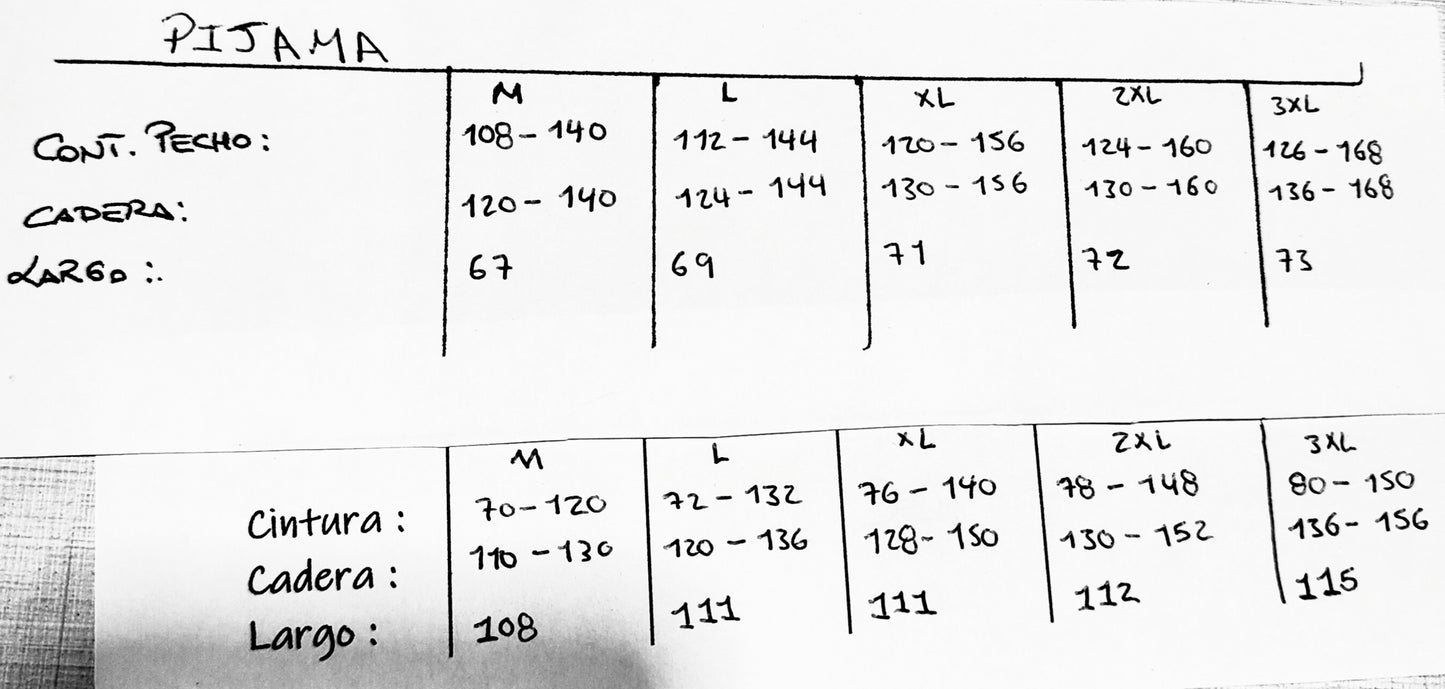 PIJAMA
M L XL 2XL 3XL
CONT. PECHO: 108-140 112-144 120-156 124-160 126-168
CADERA: 120-140 124-144 130-156 130-160 136-168
LARGO: 67 69 71 72 73
M L XL 2XL 3XL
Cintura: 70-120 72-132 76-140 78-148 80-150
Cadera: 110-130 120-136 128-150 130-152 136-156
Largo: 108 111 111 112 115